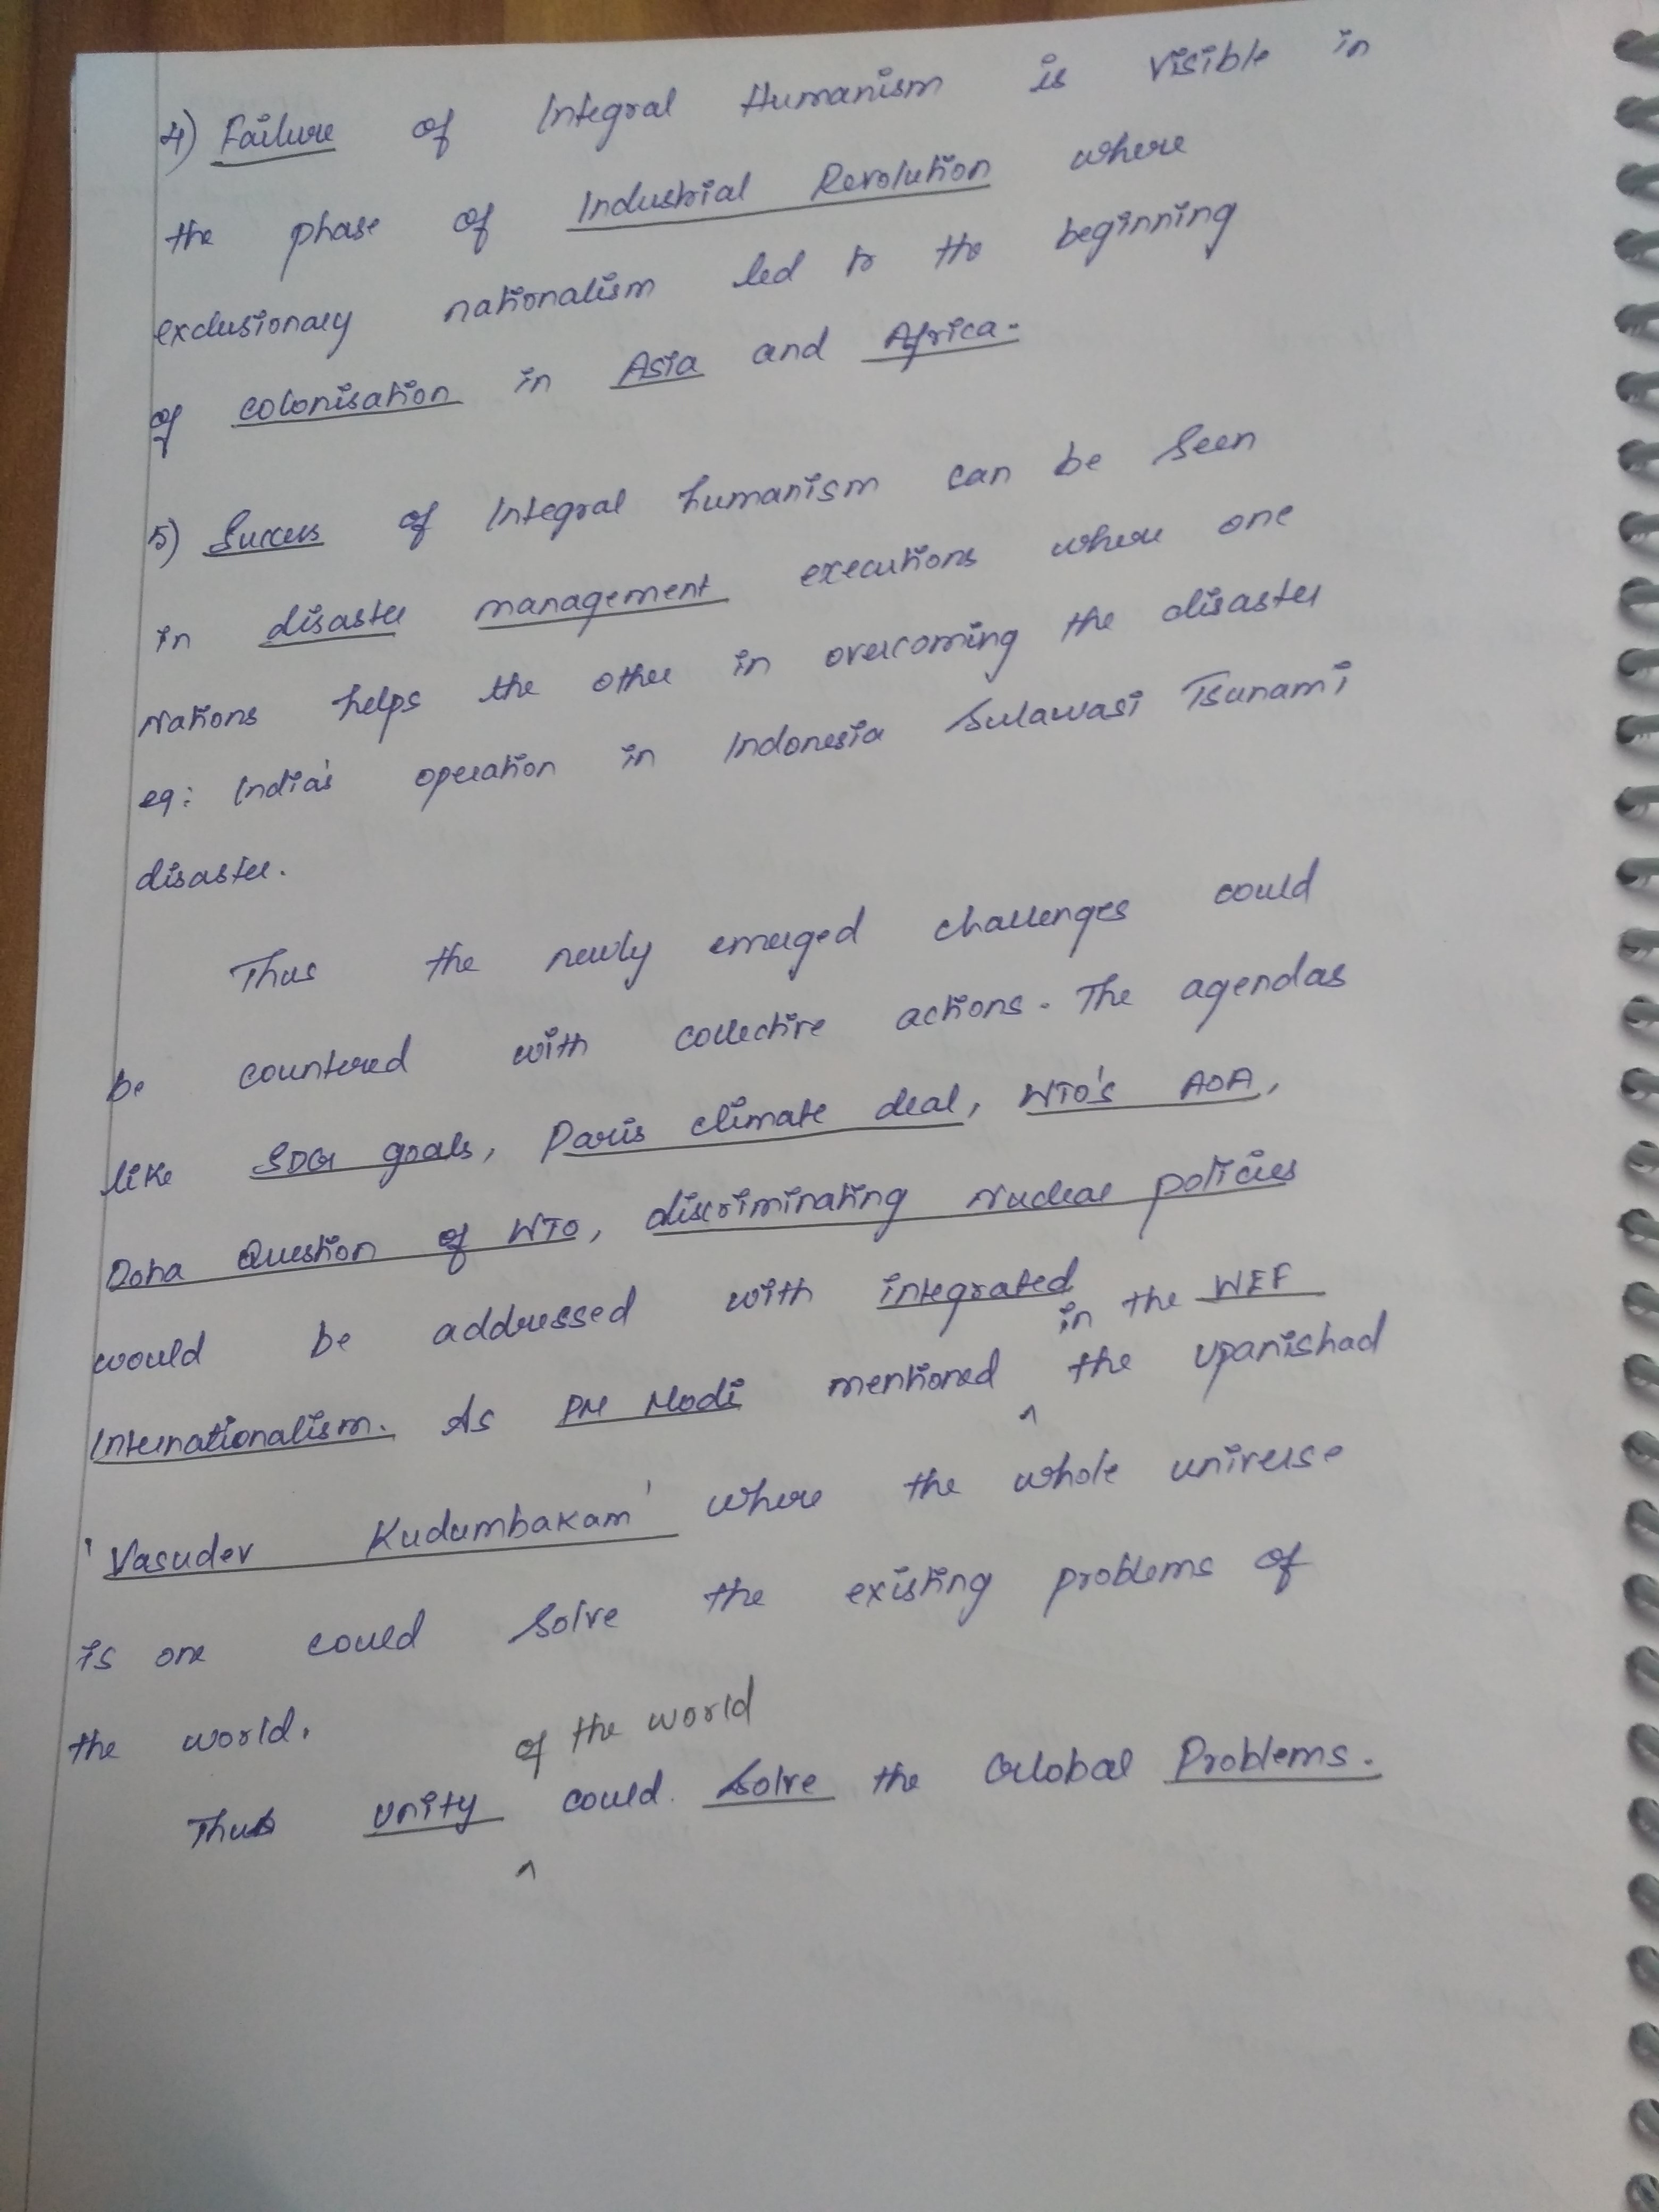 4) Failure of Integral Humanism is visible in
the phase of Industrial Revolution where
exclusionary nationalism led to the beginning
of colonisation in Asia and Africa.
5) Success of Integral humanism can be seen
in disaster management executions where one
Nations helps the other in overcoming the disaster
eg: India's operation in Indonesia Sulawasi Tsunami
disaster.
Thus the newly emerged challenges could
be countered with collective actions. The agendas
like SDG goals, Paris climate deal, WTO's AOA,
Doha Question of WTO, discriminating Nuclear policies
would be addressed with integrated
in the WEF
Internationalism. As PM Modi mentioned ^ the Upanishad
'Vasudev Kudumbakam' where the whole universe
is one could solve the existing problems of
the world.
of the world
Thus unity ^ could solve the Global Problems.